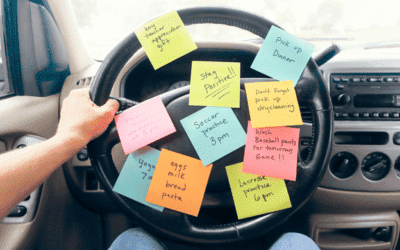 buy
teacher
appreciation
gift
Pick up
Dinner
Stay
Positive!!
Don't forget
pick up
drycleaning
Soccer
practice
3 pm
Wash
Baseball pants
for tomorrow
Game!!
Yoga
7
eggs
milk
bread
pasta
Lacrosse
practice
6 pm